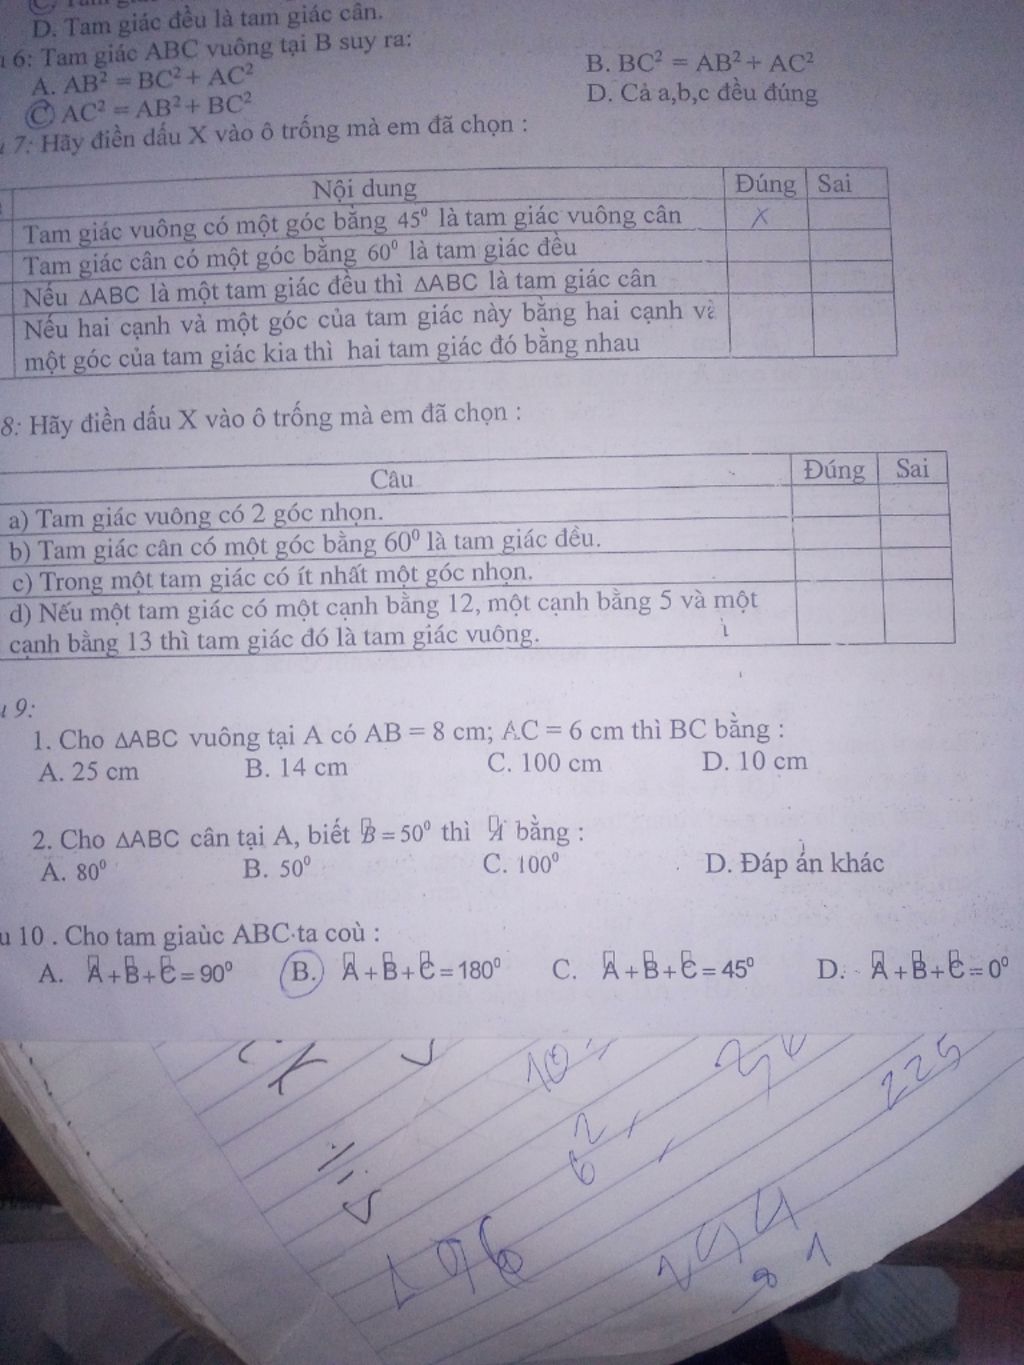 D. Tam giác đều là tam giác cân.
6: Tam giác ABC vuông tại B suy ra:
A. AB² = BC² + AC² B. BC² = AB² + AC²
C AC² = AB² + BC² D. Cả a,b,c đều đúng
7: Hãy điền dấu X vào ô trống mà em đã chọn :
Nội dung Đúng Sai
Tam giác vuông có một góc bằng 45⁰ là tam giác vuông cân X
Tam giác cân có một góc bằng 60⁰ là tam giác đều
Nếu ΔABC là một tam giác đều thì ΔABC là tam giác cân
Nếu hai cạnh và một góc của tam giác này bằng hai cạnh và
một góc của tam giác kia thì hai tam giác đó bằng nhau
8: Hãy điền dấu X vào ô trống mà em đã chọn :
Câu Đúng Sai
a) Tam giác vuông có 2 góc nhọn.
b) Tam giác cân có một góc bằng 60⁰ là tam giác đều.
c) Trong một tam giác có ít nhất một góc nhọn.
d) Nếu một tam giác có một cạnh bằng 12, một cạnh bằng 5 và một
cạnh bằng 13 thì tam giác đó là tam giác vuông.
9:
1. Cho ΔABC vuông tại A có AB = 8 cm; AC = 6 cm thì BC bằng :
A. 25 cm B. 14 cm C. 100 cm D. 10 cm
2. Cho ΔABC cân tại A, biết B = 50⁰ thì A bằng :
A. 80⁰ B. 50⁰ C. 100⁰ D. Đáp án khác
u 10 . Cho tam giaùc ABC ta coù :
A. A + B + C = 90⁰ B. A + B + C = 180⁰ C. A + B + C = 45⁰ D. A + B + C = 0⁰
225
6²
196